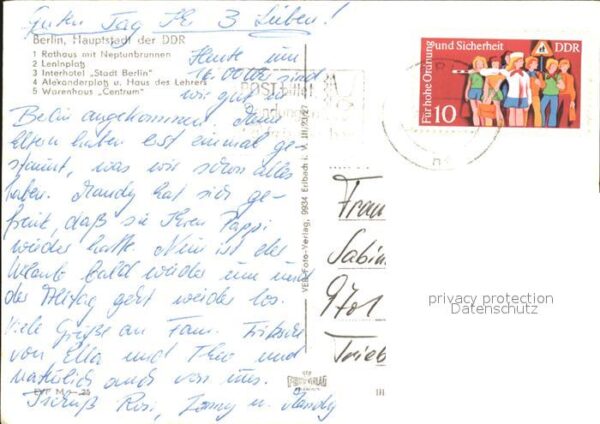 Guten Tag Ihr 3 Lieben!
Berlin, Hauptstadt der DDR
1 Rathaus mit Neptunbrunnen
2 Leninplatz
3 Interhotel „Stadt Berlin“
4 Alexanderplatz u. Haus des Lehrers
5 Warenhaus „Centrum“
Heute um
16.00 Uhr sind
wir gut in
Berlin angekommen. Meine
Eltern haben erst einmal ge-
staunt, was wir schon alles
haben. Mandy hat sich ge-
freut, daß sie Ihren Pappi
wieder hatte. Nun ist der
Urlaub bald wieder um und
der Alltag geht wieder los.
Viele Grüße an Fam.
von Ella und Theo und
natürlich auch von uns.
Tschüß Rosi, u. Mandy
VEB Foto-Verlag, 9934 Erlbach i. V.
Für hohe Ordnung und Sicherheit
DDR
10
Frau
Sabin
9701
Trieb
privacy protection
Datenschutz